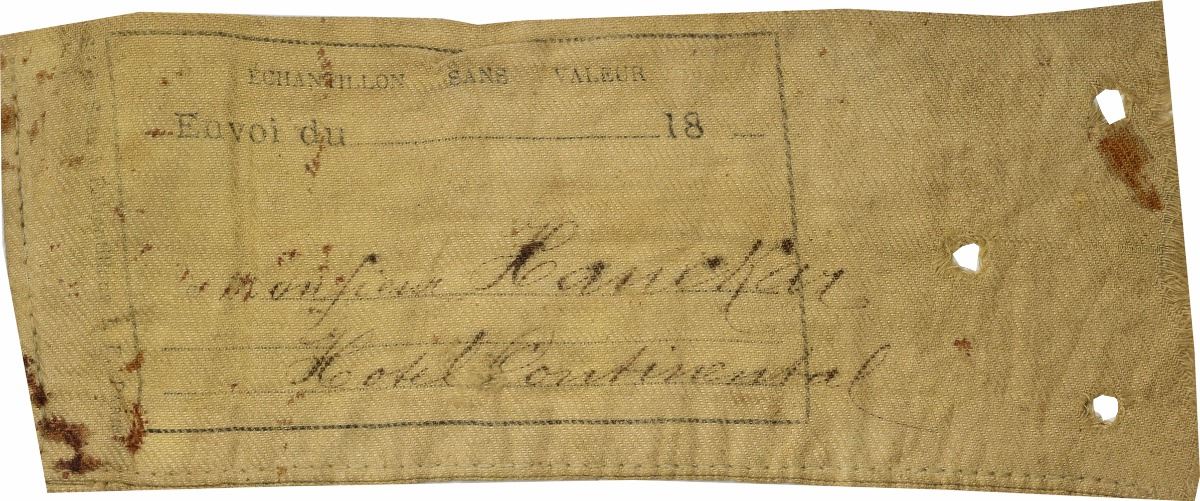 ÉCHANTILLON SANS VALEUR
Envoi du 18
Monsieur
Hotel Continental